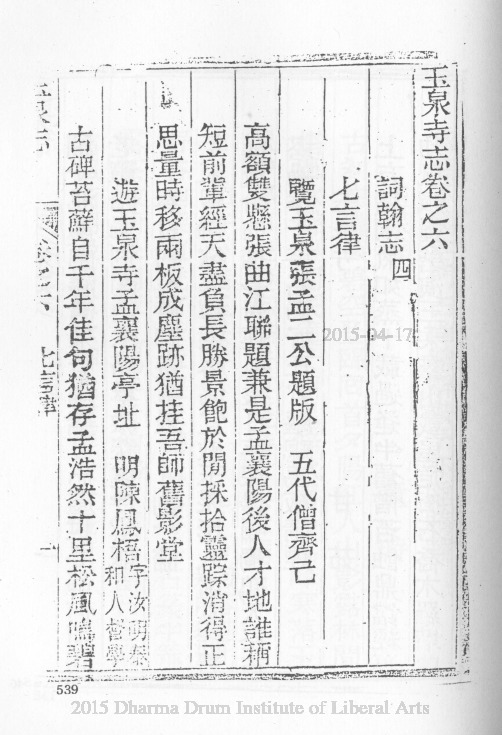 玉泉寺志卷之六
詞翰志四
七言律
覽玉泉張孟二公題版 五代僧齊己
高額雙懸張曲江聯題兼是孟襄陽後人才地誰稱
短前輩經天盡負長勝景飽於閒採拾靈踪消得正
思量時移兩板成塵跡猶挂吾師舊影堂
遊玉泉寺孟襄陽亭址 明陳鳳梧字汝明泰和人督學
古碑苔蘚自千年佳句猶存孟浩然十里松風鳴碧
玉泉志 卷之六 七言律 一
539
2015-04-17
2015 Dharma Drum Institute of Liberal Arts